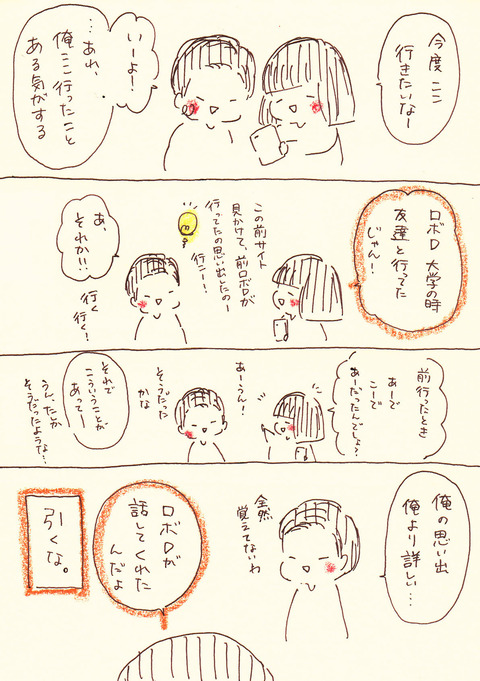 今度ココ
行きたいなー
いーよ!
…あれ、
俺ここ行ったこと
ある気がする
ロボD 大学の時
友達と行ってた
じゃん!
この前サイト
見かけて、前ロボDが
行ってたの思い出したのー
行こー!
あ、
それか!!
行く
行く!
前行ったとき
あーで
こーで
あーだったんでしょ?
あーうん!
そうだった
かな
それで
こういうことが
あってー
うん、たしか
そうだったような…
俺の思い出
俺より詳しい…
全然
覚えてないわ
ロボDが
話してくれた
んだよ
引くな。